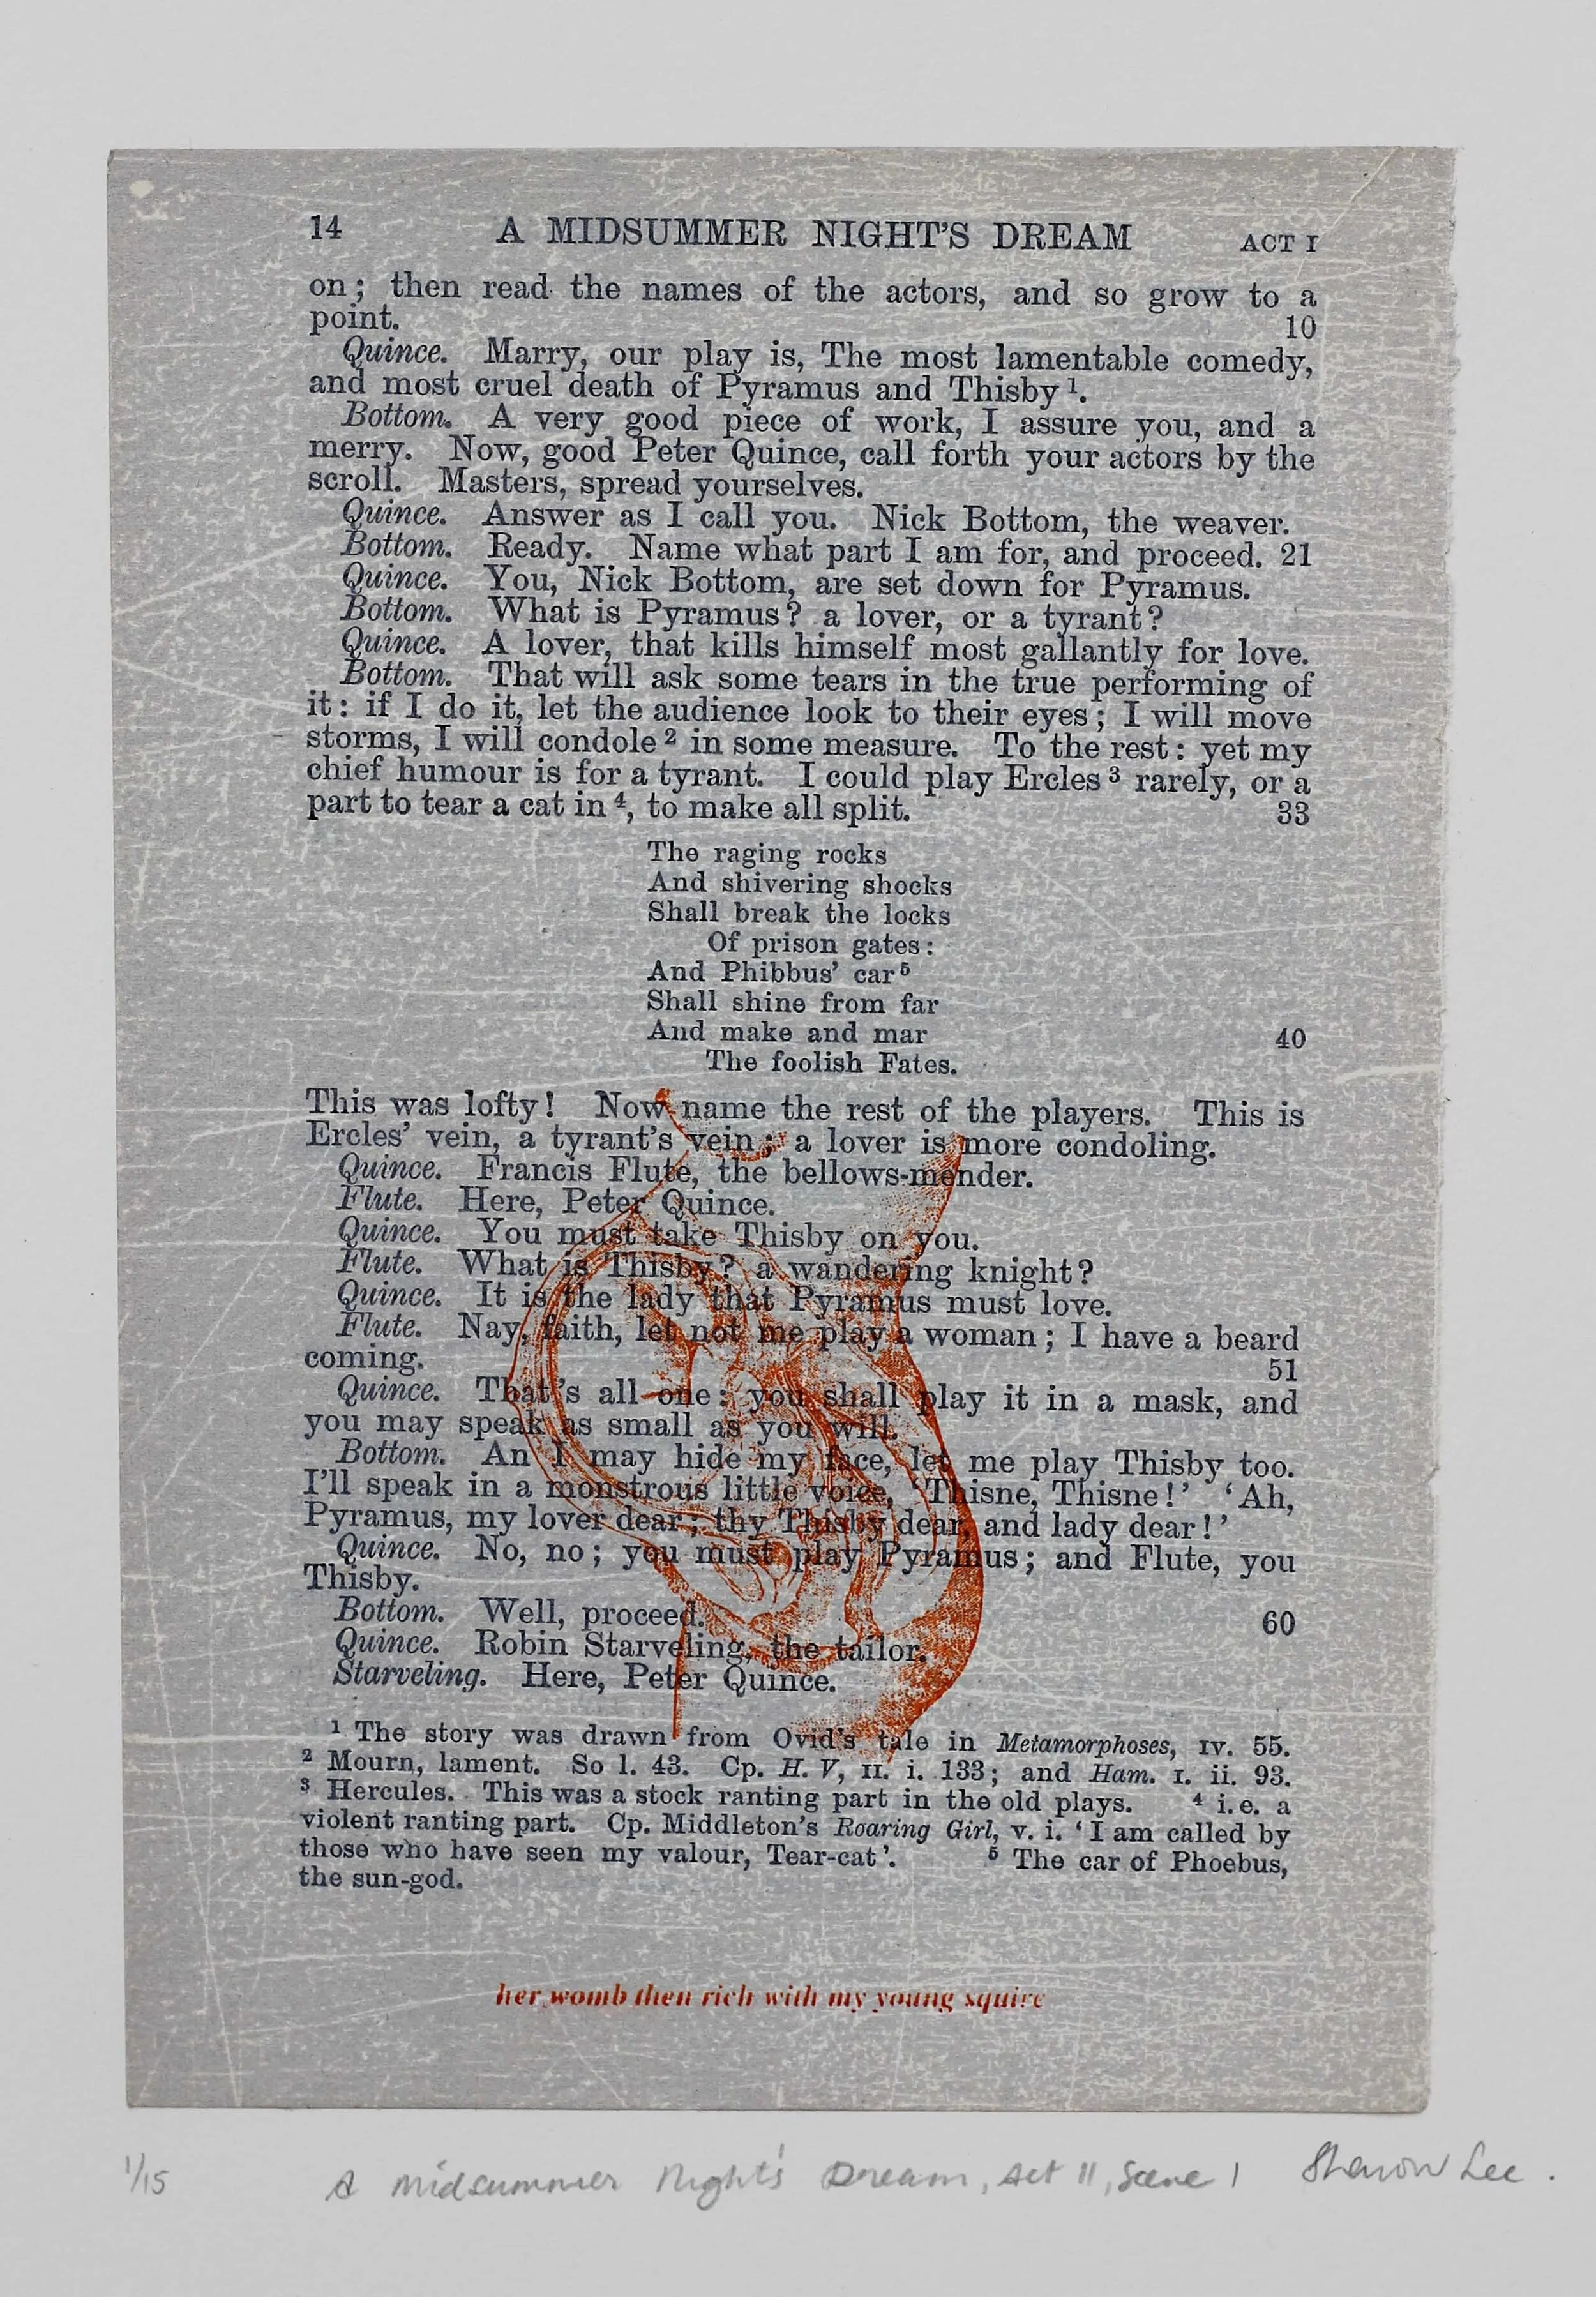 14 A MIDSUMMER NIGHT'S DREAM ACT I
on; then read the names of the actors, and so grow to a
point. 10
Quince. Marry, our play is, The most lamentable comedy,
and most cruel death of Pyramus and Thisby ¹.
Bottom. A very good piece of work, I assure you, and a
merry. Now, good Peter Quince, call forth your actors by the
scroll. Masters, spread yourselves.
Quince. Answer as I call you. Nick Bottom, the weaver.
Bottom. Ready. Name what part I am for, and proceed. 21
Quince. You, Nick Bottom, are set down for Pyramus.
Bottom. What is Pyramus? a lover, or a tyrant?
Quince. A lover, that kills himself most gallantly for love.
Bottom. That will ask some tears in the true performing of
it: if I do it, let the audience look to their eyes; I will move
storms, I will condole ² in some measure. To the rest: yet my
chief humour is for a tyrant. I could play Ercles ³ rarely, or a
part to tear a cat in ⁴, to make all split. 33
The raging rocks
And shivering shocks
Shall break the locks
Of prison gates:
And Phibbus' car ⁵
Shall shine from far
And make and mar 40
The foolish Fates.
This was lofty! Now name the rest of the players. This is
Ercles' vein, a tyrant's vein; a lover is more condoling.
Quince. Francis Flute, the bellows-mender.
Flute. Here, Peter Quince.
Quince. You must take Thisby on you.
Flute. What is Thisby? a wandering knight?
Quince. It is the lady that Pyramus must love.
Flute. Nay, faith, let not me play a woman; I have a beard
coming. 51
Quince. That's all one: you shall play it in a mask, and
you may speak as small as you will.
Bottom. An I may hide my face, let me play Thisby too.
I'll speak in a monstrous little voice, 'Thisne, Thisne!' 'Ah,
Pyramus, my lover dear; thy Thisby dear, and lady dear!'
Quince. No, no; you must play Pyramus; and Flute, you
Thisby.
Bottom. Well, proceed. 60
Quince. Robin Starveling, the tailor.
Starveling. Here, Peter Quince.
¹ The story was drawn from Ovid's tale in Metamorphoses, IV. 55.
² Mourn, lament. So l. 43. Cp. H. V, II. i. 133; and Ham. I. ii. 93.
³ Hercules. This was a stock ranting part in the old plays. ⁴ i.e. a
violent ranting part. Cp. Middleton's Roaring Girl, v. i. 'I am called by
those who have seen my valour, Tear-cat'. ⁵ The car of Phoebus,
the sun-god.
her womb then rich with my young squire
1/15 A Midsummer Night's Dream, Act 11, Scene 1 Sharon Lee.